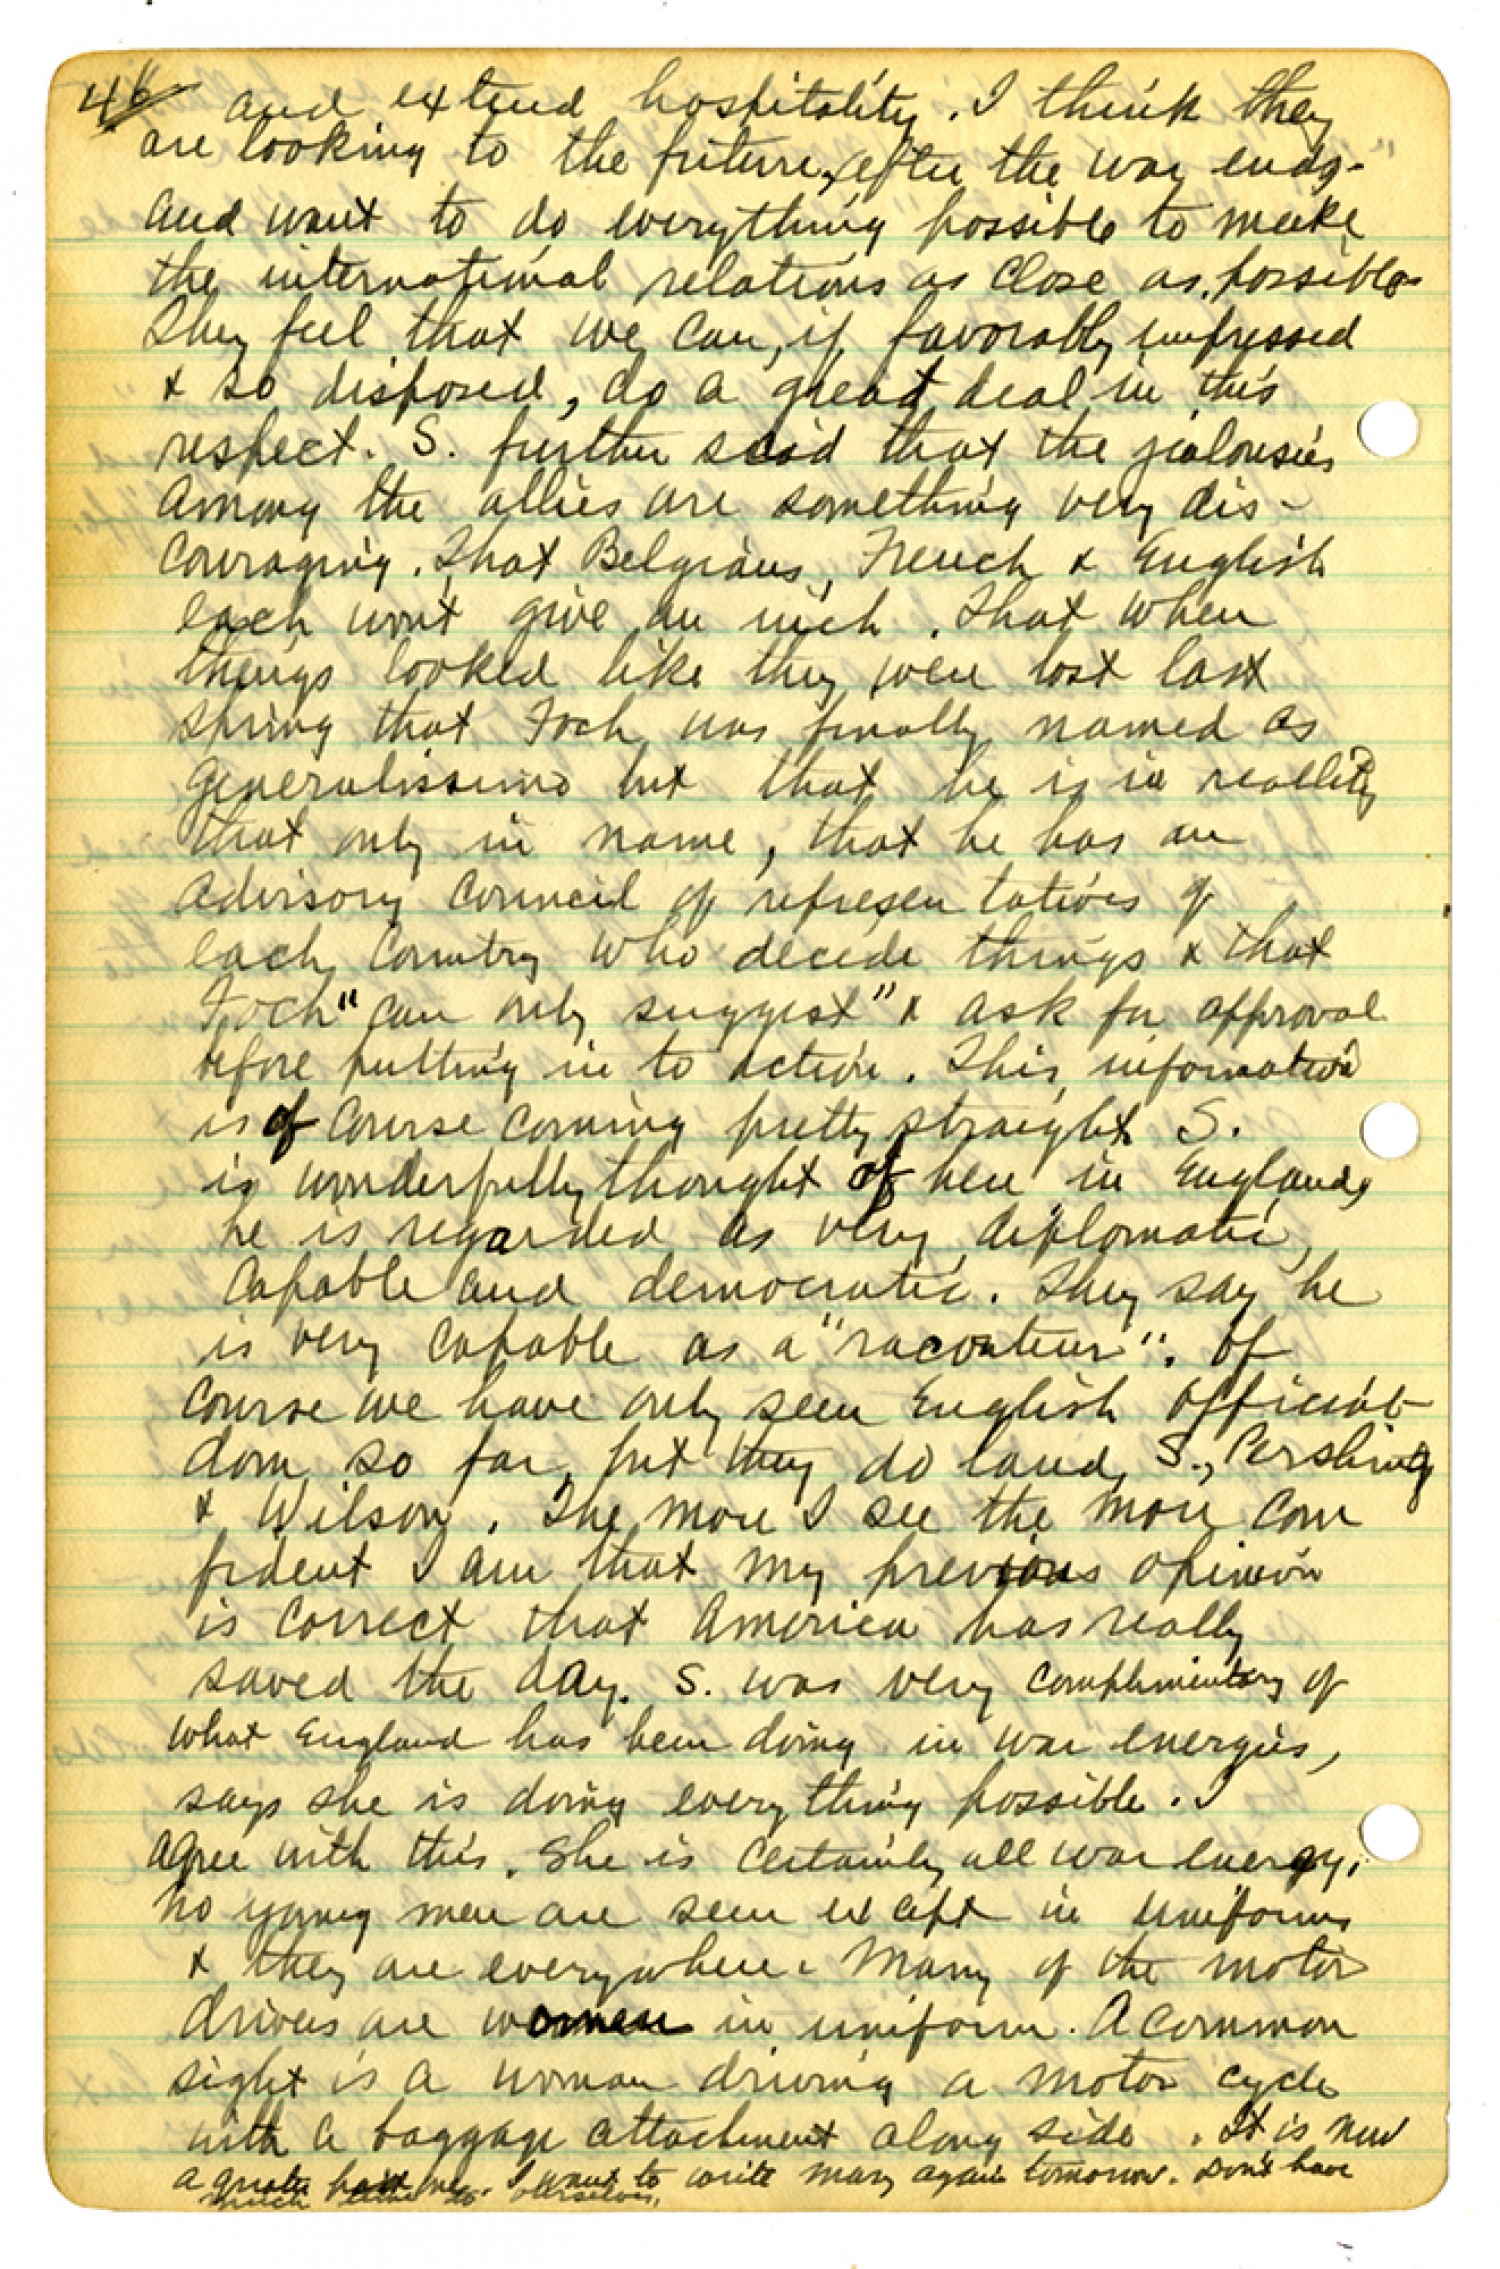 46 and extend hospitality. I think they
are looking to the future, after the war ends-
and want to do everything possible to make
the international relations as close as possible
They feel that we can, if favorably impressed
& so disposed, do a great deal in this
respect. S. further said that the jealousies
among the allies are something very dis-
couraging. That Belgians, French & English
each wont give an inch. That when
things looked like they were lost last
spring that Foch was finally named as
generalissimo but that he is in reallity
that only in name, that he has an
advisory council of representatives of
each country who decide things & that
Foch "can only suggest" & ask for approval
before putting in to action. This information
is of course coming pretty straight. S.
is wonderfully thought of here in England,
he is regarded as very diplomatic,
capable and democratic. They say he
is very capable as a "raconteur". Of
course we have only seen English official-
dom so far, but they do laud, S., Pershing
& Wilson. The more I see the more con
fident I am that my previous opinion
is correct that America has really
saved the day. S. was very complimentary of
what England has been doing in war energies,
says she is doing everything possible. I
agree with this. She is certainly all war energy.
No young men are seen except in uniforms
& they are everywhere. Many of the motor
drivers are women in uniform. A common
sight is a woman driving a motor cycle
with a baggage attachment along side. It is now
a quarter past one. I want to write Mary again tomorrow. Don't have
much time to ourselves.